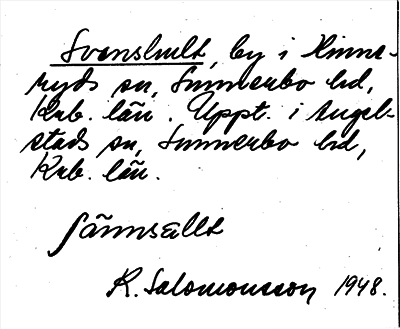 Svenshult, by i Hinne-
ryds sn, Sunnerbo hd,
Krb. län. Uppt. i Angel-
stads sn, Sunnerbo hd,
Krb. län.
sämnsället
R. Salomonsson 1948.